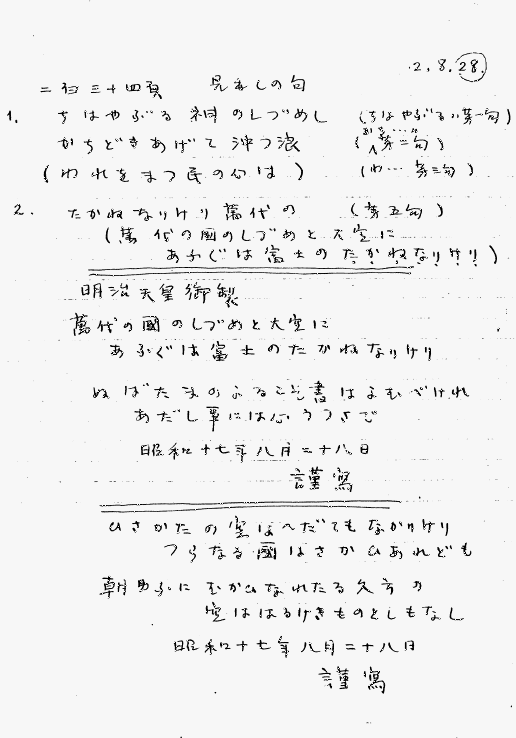 2, 8, 28.
二百三十四頁 見出しの句
1. ちはやぶる神のしづめし (ちはやぶる..第一句)
かちどきあげて沖つ浪 (第二句)
(われをまつ民の心は) (わ…第三句)
2. たかねなりけり萬代の (第五句)
(萬代の國のしづめと大空に
あふぐは富士のたかねなりけり)
明治天皇御製
萬代の國のしづめと大空に
あふぐは富士のたかねなりけり
ぬばたまのよるこそ書はよむべけれ
あだし事には心うつさで
昭和十七年八月二十八日
謹寫
ひさかたの空はへだてもなかりけり
つらなる國はさかひあれども
朝夕ふに むかひなれたる久方の
空ははるけきものとしもなし
昭和十七年八月二十八日
謹寫